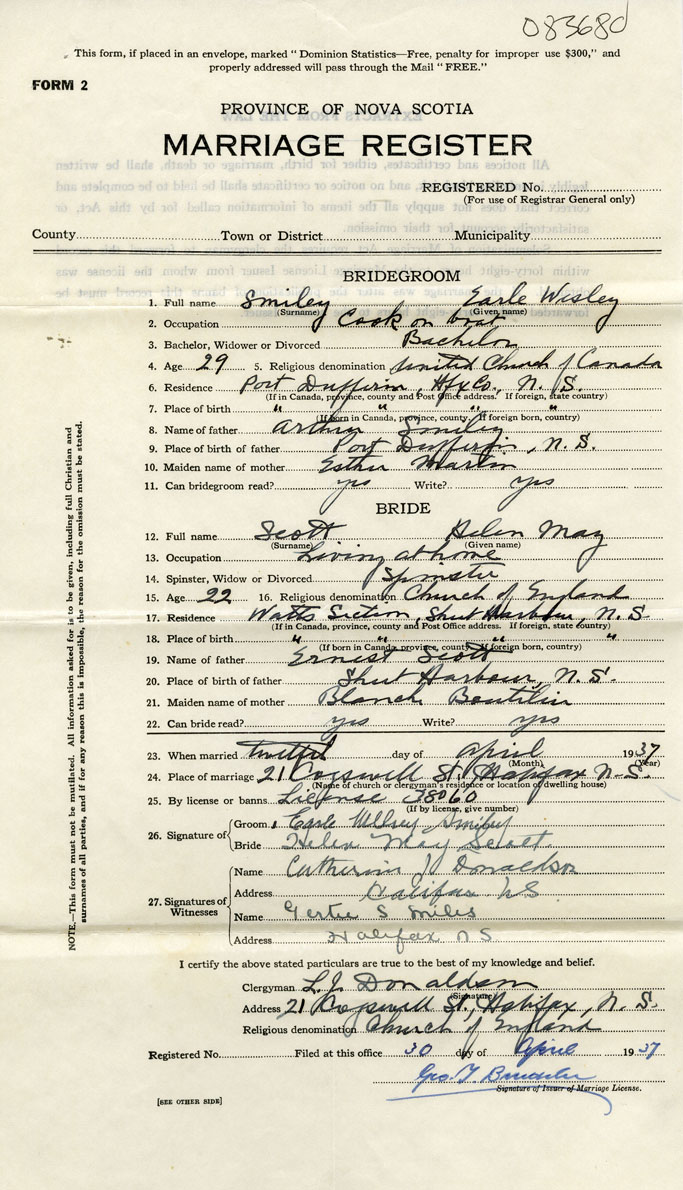 083680
This form, if placed in an envelope, marked "Dominion Statistics—Free, penalty for improper use $300," and
properly addressed will pass through the Mail "FREE."
FORM 2
PROVINCE OF NOVA SCOTIA
MARRIAGE REGISTER
REGISTERED No.
(For use of Registrar General only)
County Town or District Municipality
BRIDEGROOM
1. Full name Smiley Earle Wesley
(Surname) (Given name)
2. Occupation Cook on boat
3. Bachelor, Widower or Divorced Bachelor
4. Age 29 5. Religious denomination United Church of Canada
6. Residence Port Dufferin, Hfx Co., N. S.
(If in Canada, province, county and Post Office address. If foreign, state country)
7. Place of birth " " " "
(If born in Canada, province, county. If foreign born, country)
8. Name of father Arthur Smiley
9. Place of birth of father Port Dufferin, N. S.
10. Maiden name of mother Esther Martin
11. Can bridegroom read? yes Write? yes
BRIDE
12. Full name Scott Helen May
(Surname) (Given name)
13. Occupation Living at home
14. Spinster, Widow or Divorced Spinster
15. Age 22 16. Religious denomination Church of England
17. Residence Watts Section, Sheet Harbour, N. S.
(If in Canada, province, county and Post Office address. If foreign, state country)
18. Place of birth " " " "
(If born in Canada, province, county. If foreign born, country)
19. Name of father Ernest Scott
20. Place of birth of father Sheet Harbour, N. S.
21. Maiden name of mother Blanch Boutilin
22. Can bride read? yes Write? yes
23. When married twelfth day of April 1937
(Month) (Year)
24. Place of marriage 21 Cogswell St. Halifax N. S.
(Name of church or clergyman's residence or location of dwelling house)
25. By license or banns License 38060
(If by license, give number)
26. Signature of Groom Earle Wesley Smiley
Bride Helen May Scott
27. Signatures of Witnesses
Name Catherine J Donaldson
Address Halifax NS
Name Gertie S Smiles
Address Halifax NS
I certify the above stated particulars are true to the best of my knowledge and belief.
Clergyman L. J. Donaldson
(Signature)
Address 21 Cogswell St., Halifax, N. S.
Religious denomination Church of England
Registered No. Filed at this office 30 day of April 1937
Geo. T.
Signature of Issuer of Marriage License.
[SEE OTHER SIDE]
NOTE.—This form must not be mutilated. All information asked for is to be given, including full Christian and
surnames of all parties, and if for any reason this is impossible, the reason for the omission must be stated.